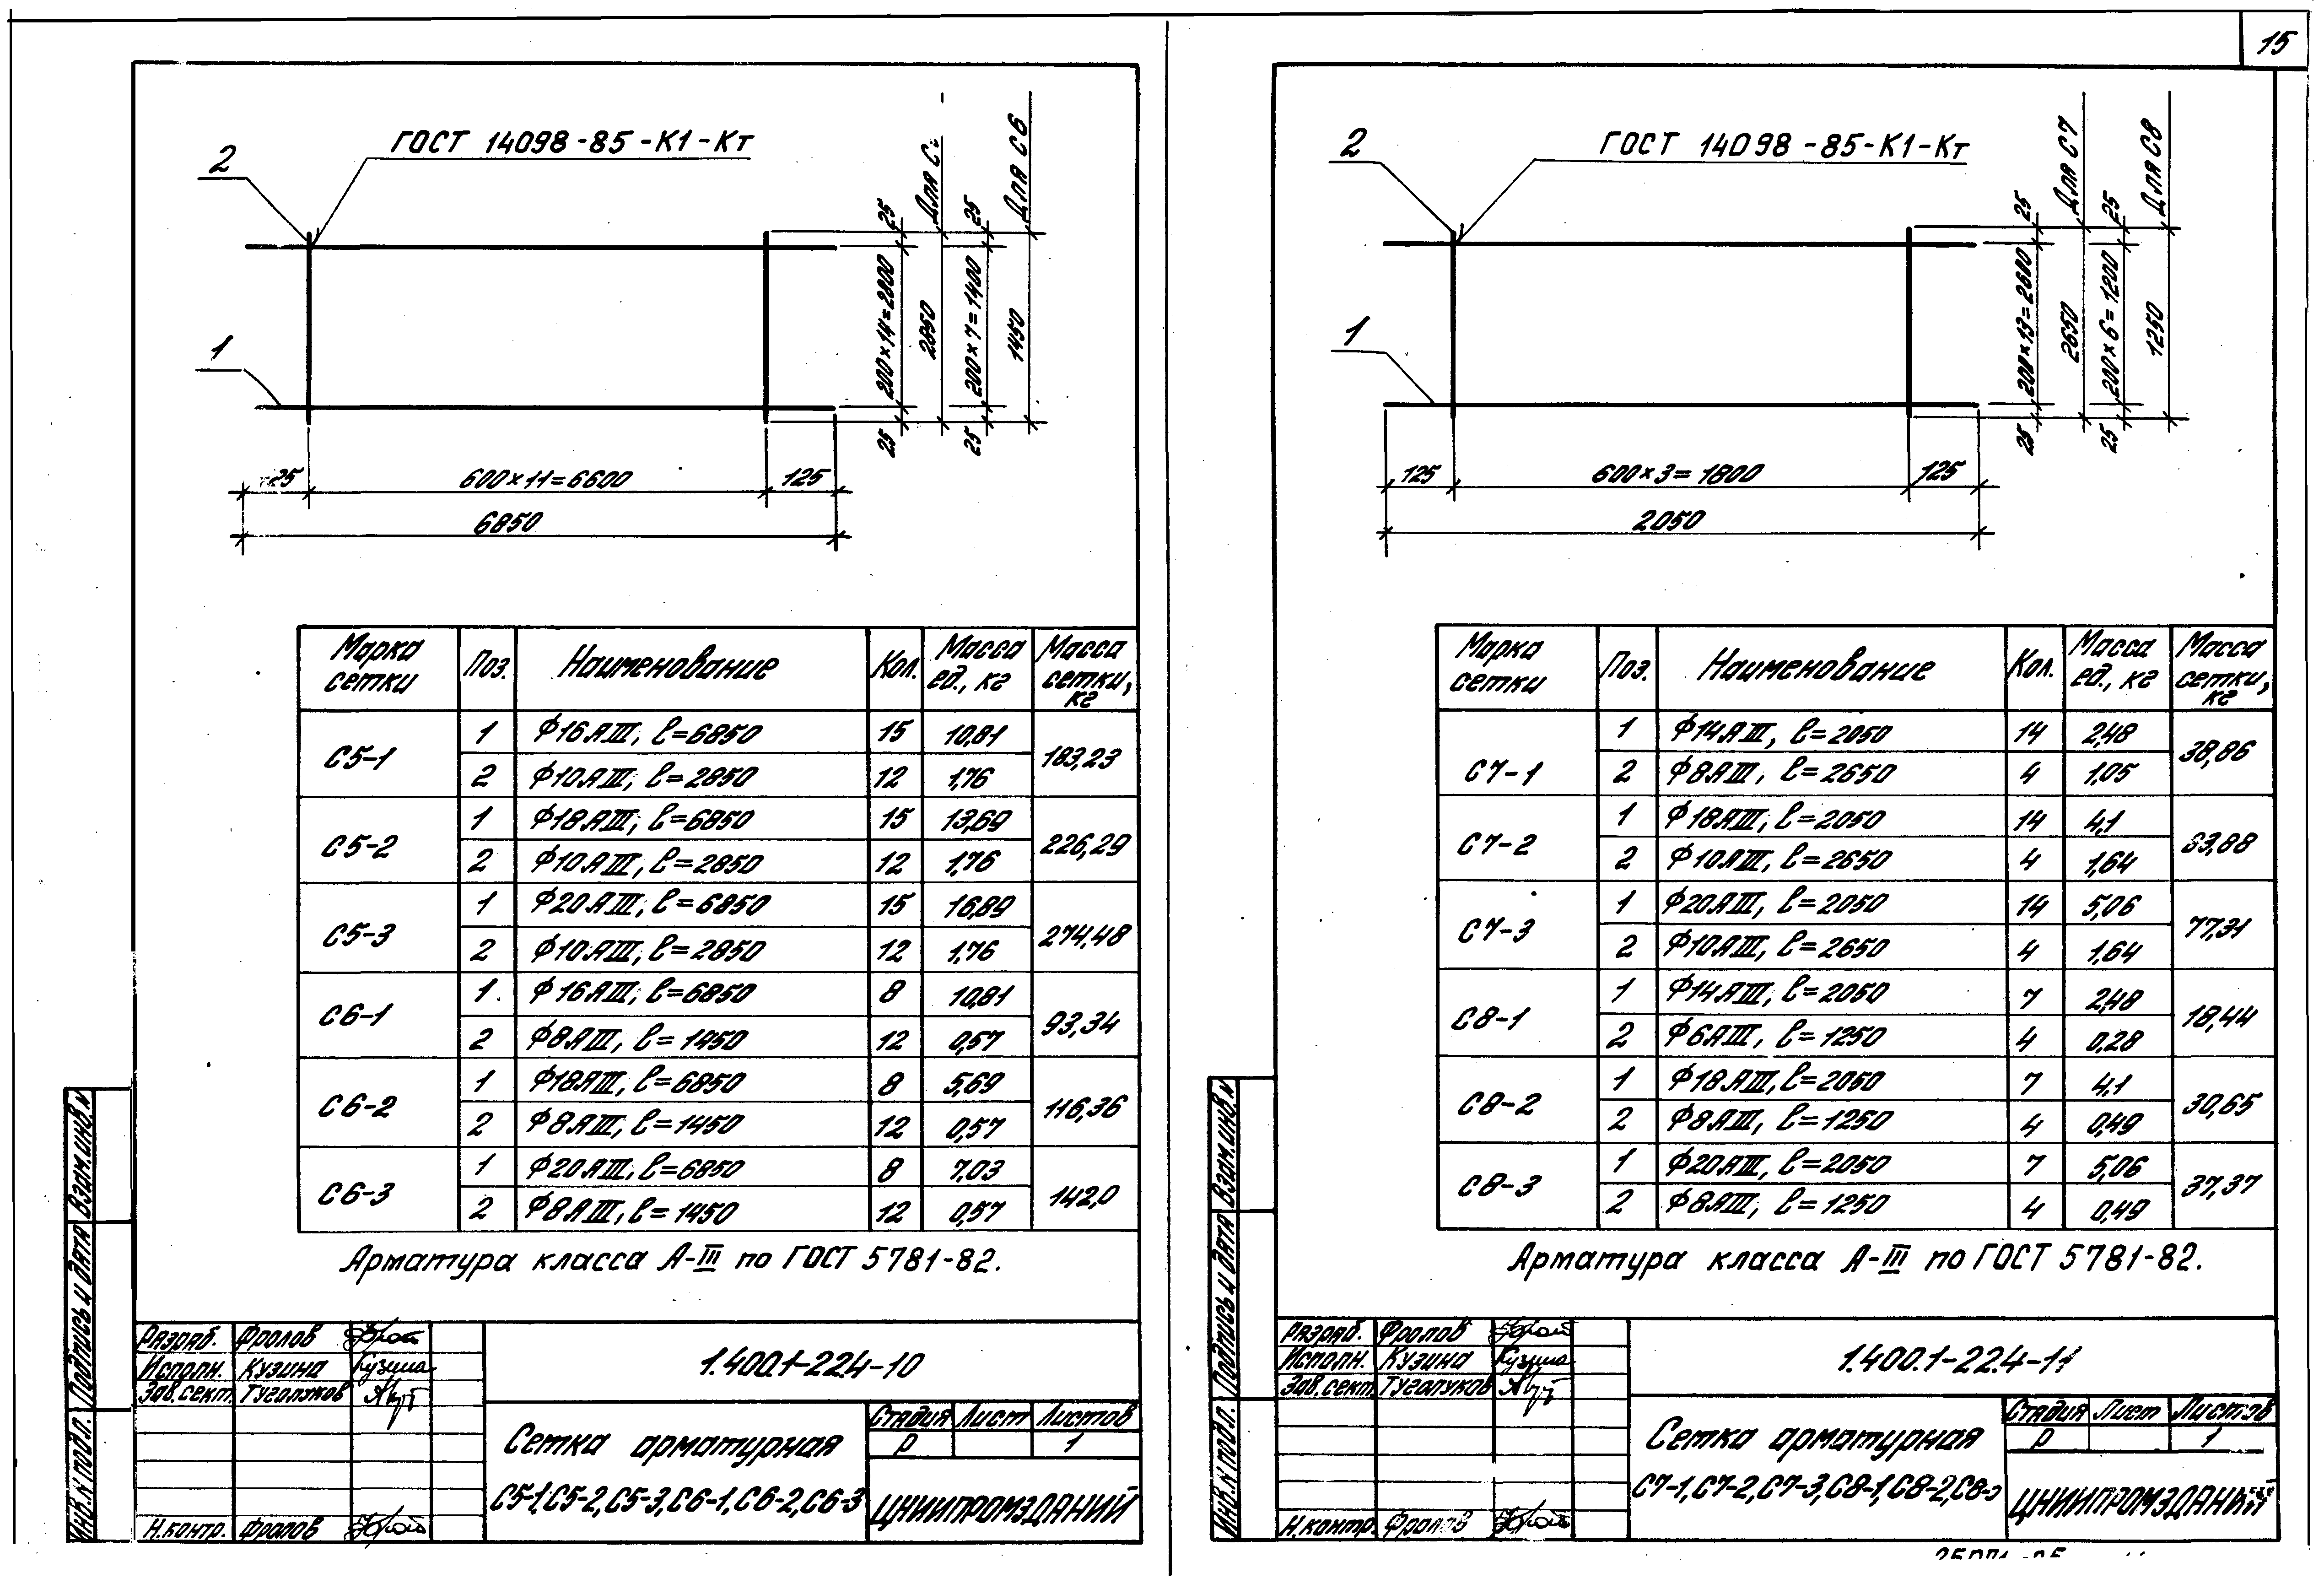 15
ГОСТ 14098-85-К1-Кт
2
1
25
200×14=2800
25
2850
Для С
25
200×7=1400
25
1450
Для С6
600×11=6600
125
6850
Марка сетки | Поз. | Наименование | Кол. | Масса ед., кг | Масса сетки, кг
С5-1 | 1 | Ф16АIII, ℓ=6850 | 15 | 10,81 | 183,23
2 | Ф10АIII, ℓ=2850 | 12 | 1,76
С5-2 | 1 | Ф18АIII, ℓ=6850 | 15 | 13,69 | 226,29
2 | Ф10АIII, ℓ=2850 | 12 | 1,76
С5-3 | 1 | Ф20АIII, ℓ=6850 | 15 | 16,89 | 274,48
2 | Ф10АIII, ℓ=2850 | 12 | 1,76
С6-1 | 1 | Ф16АIII, ℓ=6850 | 8 | 10,81 | 93,34
2 | Ф8АIII, ℓ=1450 | 12 | 0,57
С6-2 | 1 | Ф18АIII, ℓ=6850 | 8 | 5,69 | 116,36
2 | Ф8АIII, ℓ=1450 | 12 | 0,57
С6-3 | 1 | Ф20АIII, ℓ=6850 | 8 | 7,03 | 142,0
2 | Ф8АIII, ℓ=1450 | 12 | 0,57
Арматура класса А-III по ГОСТ 5781-82.
Взам.инв.N
Подпись и дата
Инв.N подл.
Разраб. Фролов
Исполн. Кузина Кузина
Зав.сект. Тугалуков
Н.контр. Фролов
1.400.1-22.4-10
Сетка арматурная
С5-1,С5-2,С5-3,С6-1,С6-2,С6-3
Стадия Лист Листов
Р 1
ЦНИИПРОМЗДАНИЙ
ГОСТ 14098-85-К1-Кт
2
1
25
200×13=2600
25
2650
Для С7
25
200×6=1200
25
1250
Для С8
125
600×3=1800
125
2050
Марка сетки | Поз. | Наименование | Кол. | Масса ед., кг | Масса сетки, кг
С7-1 | 1 | Ф14АIII, ℓ=2050 | 14 | 2,48 | 38,86
2 | Ф8АIII, ℓ=2650 | 4 | 1,05
С7-2 | 1 | Ф18АIII, ℓ=2050 | 14 | 4,1 | 63,88
2 | Ф10АIII, ℓ=2650 | 4 | 1,64
С7-3 | 1 | Ф20АIII, ℓ=2050 | 14 | 5,06 | 77,31
2 | Ф10АIII, ℓ=2650 | 4 | 1,64
С8-1 | 1 | Ф14АIII, ℓ=2050 | 7 | 2,48 | 18,44
2 | Ф6АIII, ℓ=1250 | 4 | 0,28
С8-2 | 1 | Ф18АIII, ℓ=2050 | 7 | 4,1 | 30,65
2 | Ф8АIII, ℓ=1250 | 4 | 0,49
С8-3 | 1 | Ф20АIII, ℓ=2050 | 7 | 5,06 | 37,37
2 | Ф8АIII, ℓ=1250 | 4 | 0,49
Арматура класса А-III по ГОСТ 5781-82.
Взам.инв.N
Подпись и дата
Инв.N подл.
Разраб. Фролов
Исполн. Кузина Кузина
Зав.сект. Тугалуков
Н.контр. Фролов
1.400.1-22.4-11
Сетка арматурная
С7-1,С7-2,С7-3,С8-1,С8-2,С8-3
Стадия Лист Листов
Р 1
ЦНИИПРОМЗДАНИЙ